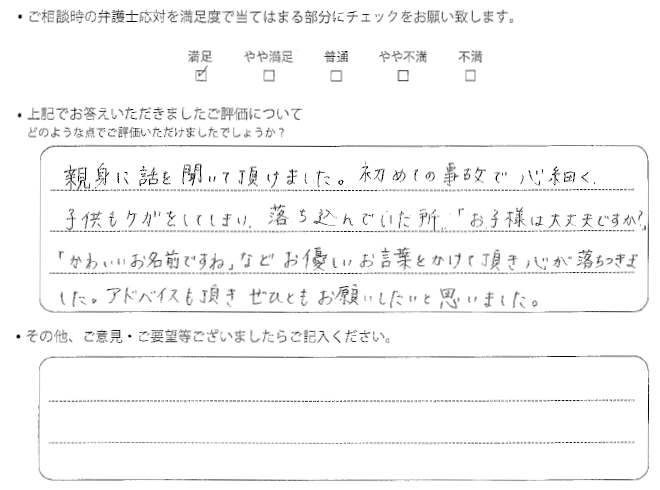 ・ご相談時の弁護士応対を満足度で当てはまる部分にチェックをお願い致します。
満足 やや満足 普通 やや不満 不満
☑ □ □ □ □
・上記でお答えいただきましたご評価について
どのような点でご評価いただけましたでしょうか？
親身に話を聞いて頂けました。初めての事故で心細く、
子供もケガをしてしまい、落ち込んでいた所、「お子様は大丈夫ですか？」
「かわいいお名前ですね」などお優しいお言葉をかけて頂き心が落ちつきま
した。アドバイスも頂きぜひともお願いしたいと思いました。
・その他、ご意見・ご要望等ございましたらご記入ください。